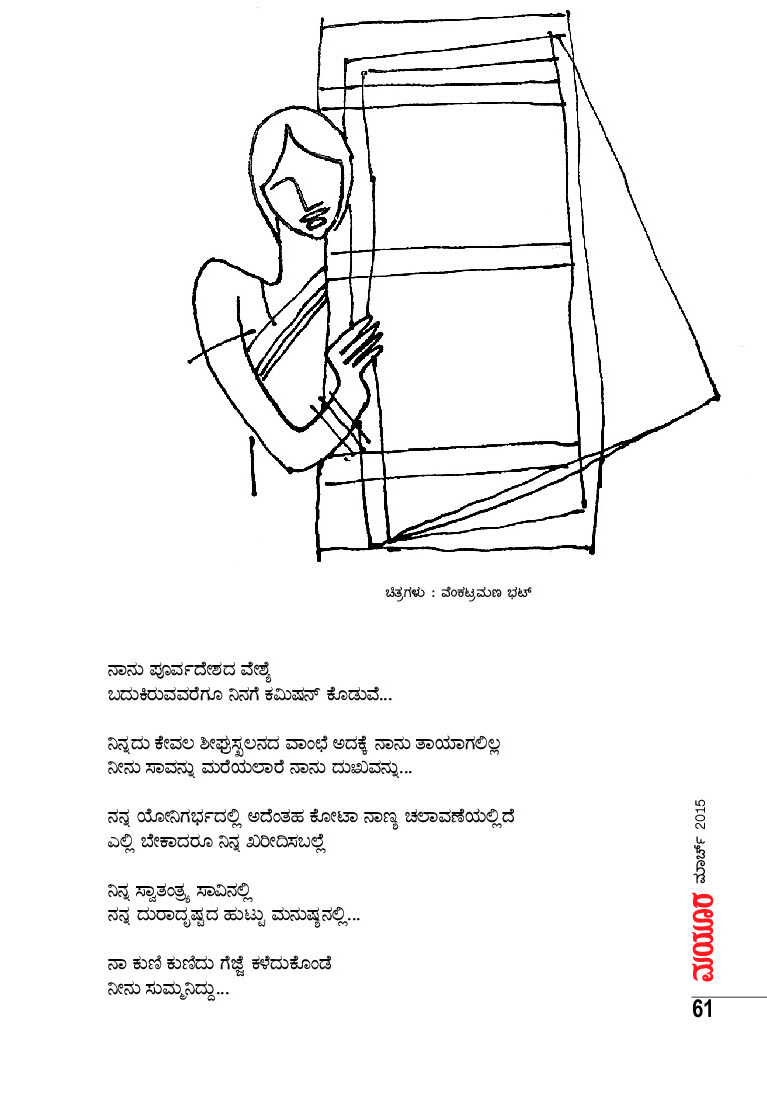 ಚಿತ್ರಗಳು : ವೆಂಕಟ್ರಮಣ ಭಟ್
ನಾನು ಪೂರ್ವದೇಶದ ವೇಶ್ಯೆ
ಬದುಕಿರುವವರೆಗೂ ನಿನಗೆ ಕಮಿಷನ್ ಕೊಡುವೆ...
ನಿನ್ನದು ಕೇವಲ ಶೀಘ್ರಸ್ಖಲನದ ವಾಂಛೆ ಅದಕ್ಕೆ ನಾನು ತಾಯಾಗಲಿಲ್ಲ
ನೀನು ಸಾವನ್ನು ಮರೆಯಲಾರೆ ನಾನು ದುಃಖವನ್ನು...
ನನ್ನ ಯೋನಿಗರ್ಭದಲ್ಲಿ ಅದೆಂತಹ ಕೋಟಾ ನಾಣ್ಯ ಚಲಾವಣೆಯಲ್ಲಿದೆ
ಎಲ್ಲಿ ಬೇಕಾದರೂ ನಿನ್ನ ಖರೀದಿಸಬಲ್ಲೆ
ನಿನ್ನ ಸ್ವಾತಂತ್ರ್ಯ ಸಾವಿನಲ್ಲಿ
ನನ್ನ ದುರಾದೃಷ್ಟದ ಹುಟ್ಟು ಮನುಷ್ಯನಲ್ಲಿ...
ನಾ ಕುಣಿ ಕುಣಿದು ಗೆಜ್ಜೆ ಕಳೆದುಕೊಂಡೆ
ನೀನು ಸುಮ್ಮನಿದ್ದು...
ಮಯೂರ ಮಾರ್ಚ್ 2015
61